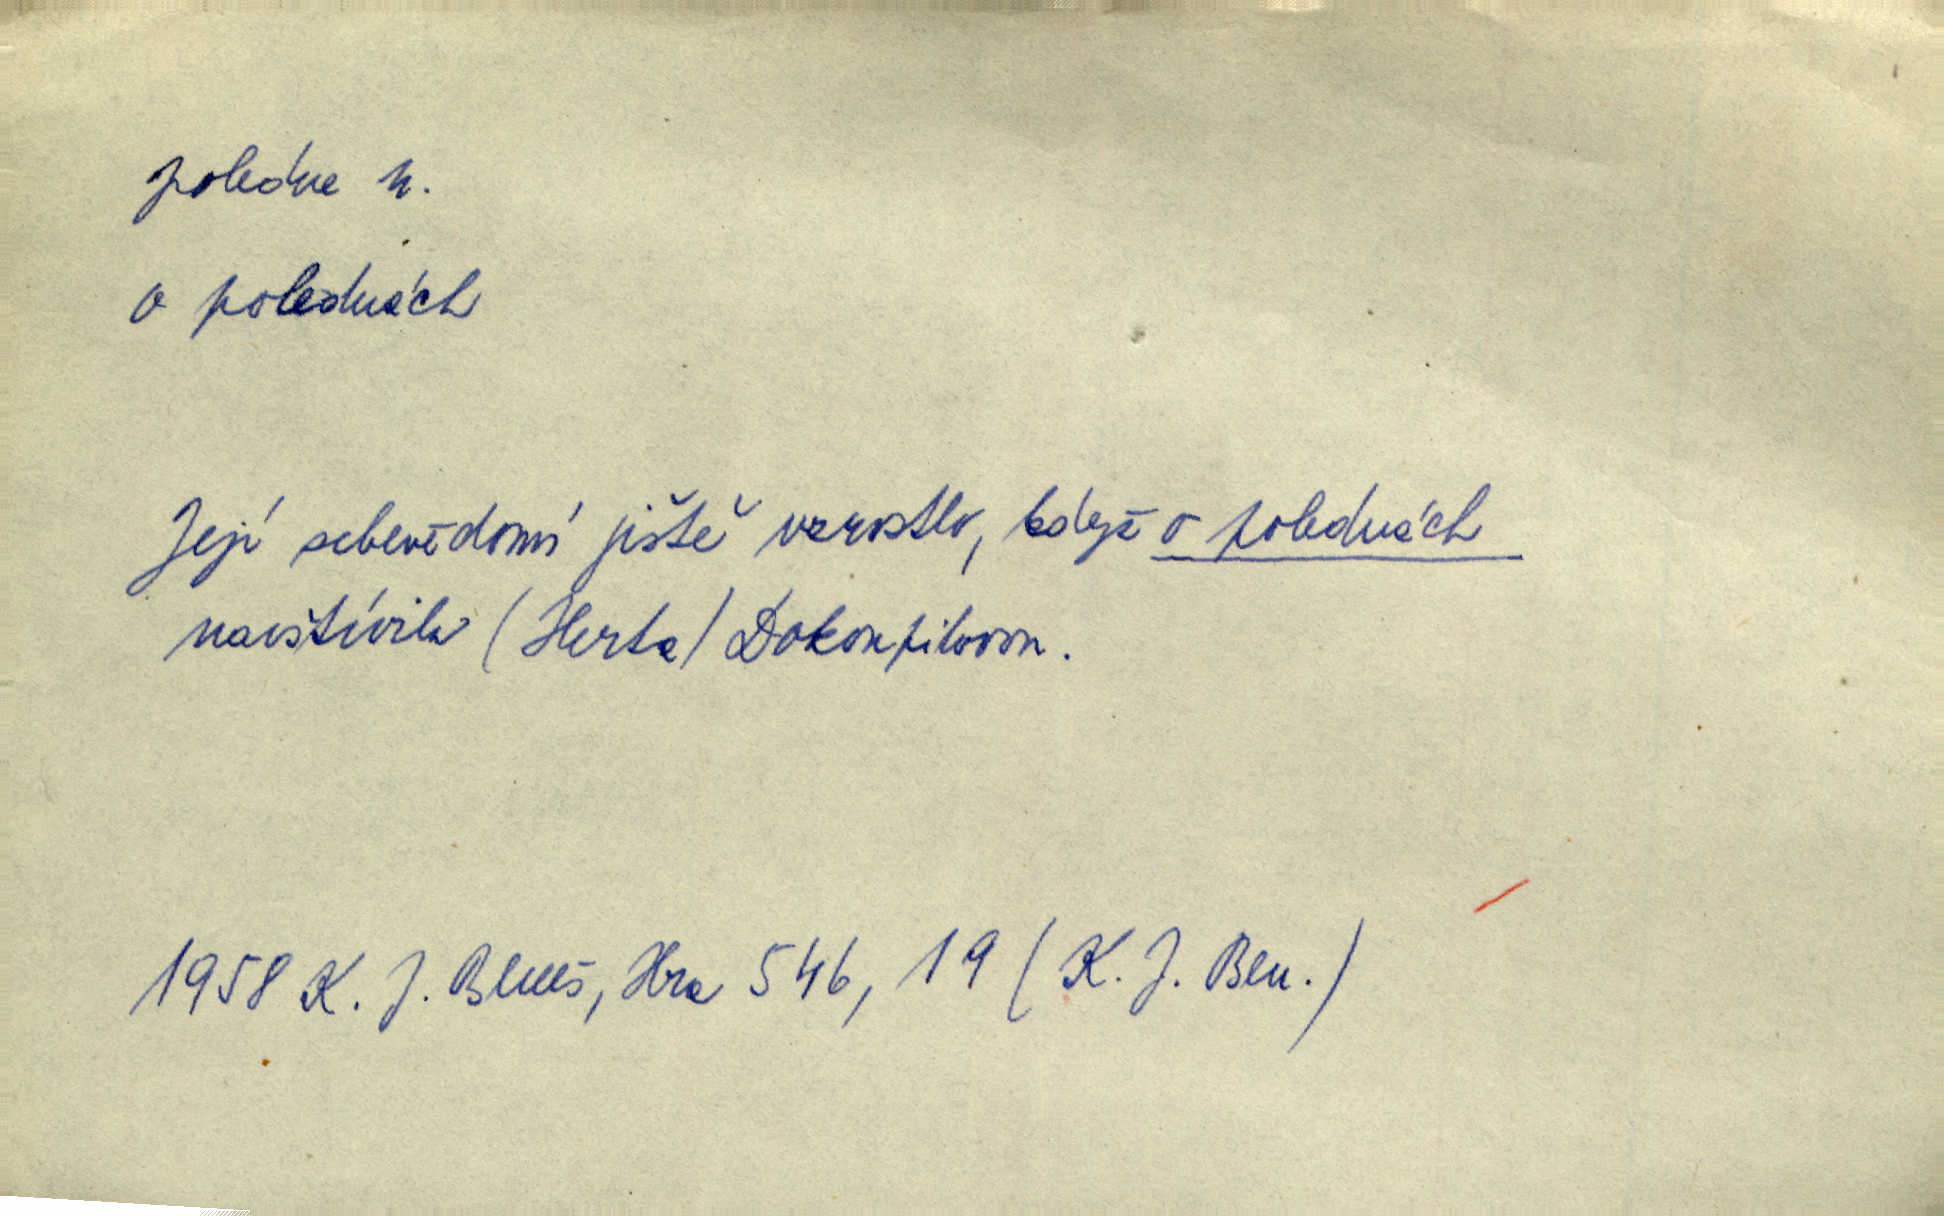 poledne n.
o polednách
Její sebevědomí ještě vzrostlo, když o polednách
navštívila (Herta) Dokoupilovou.
1958 K. J. Beneš, Hra 546, 19 (K. J. Ben.)